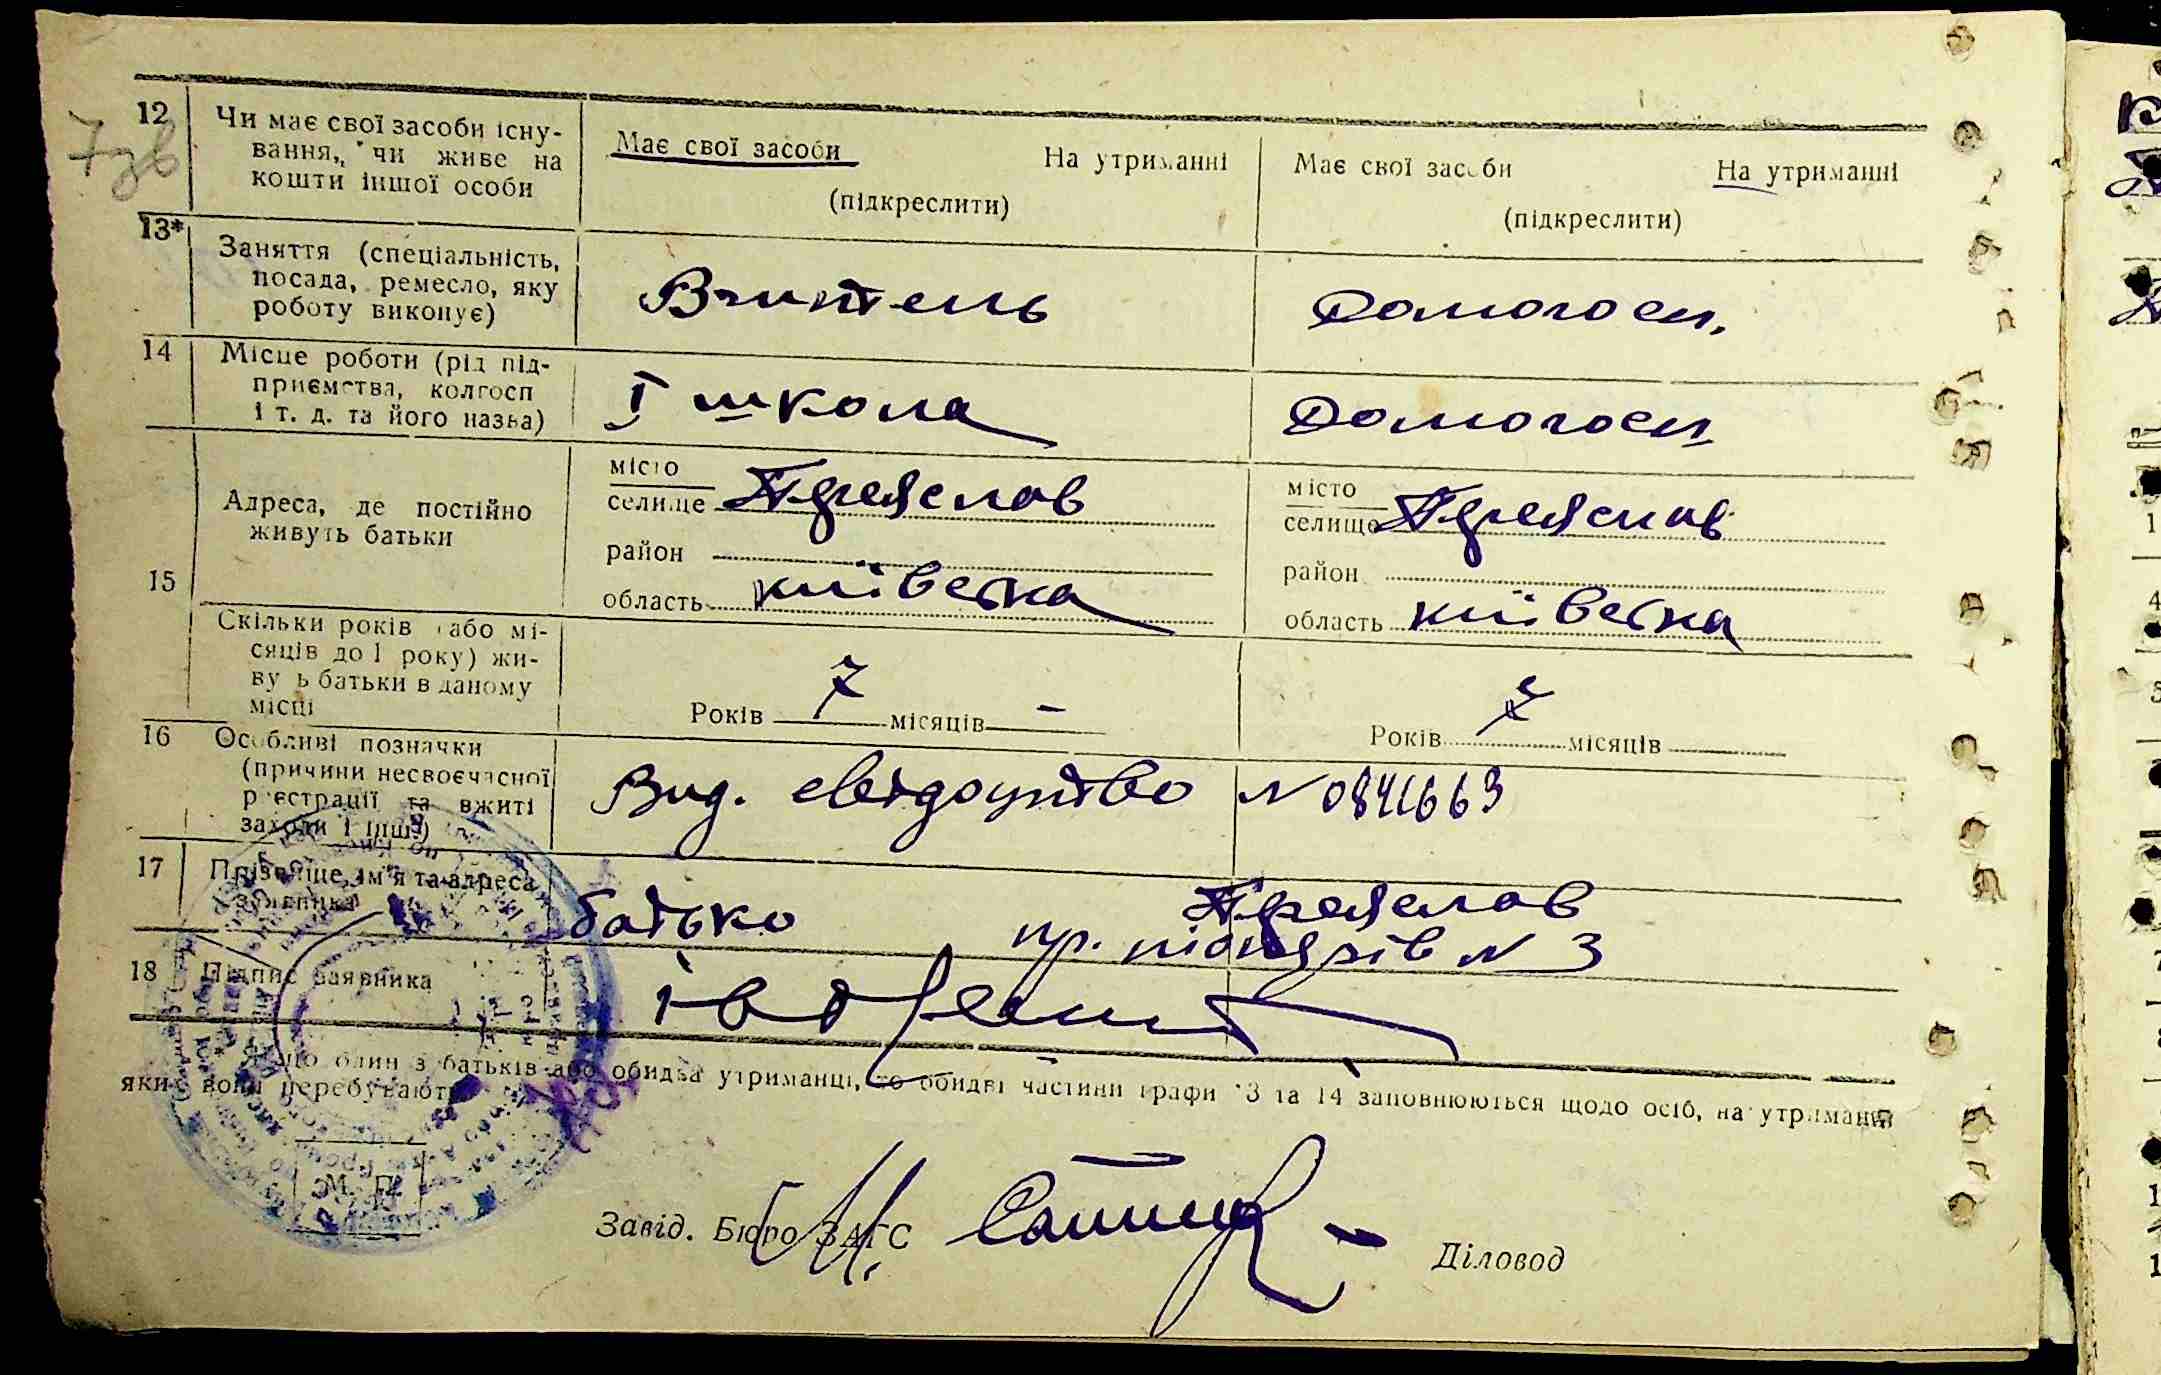 7 зв
12 Чи має свої засоби існу-
вання, чи живе на
кошти іншої особи
Має свої засоби На утриманні
(підкреслити)
Має свої засоби На утриманні
(підкреслити)
13* Заняття (спеціальність,
посада, ремесло, яку
роботу виконує)
Вчитель
Домогосп.
14 Місце роботи (рід під-
приємства, колгосп
і т. д. та його назва)
І школа
Домогосп
15 Адреса, де постійно
живуть батьки
місто
селище Переяслав
район
область київська
місто
селище Переяслав
район
область київська
Скільки років (або мі-
сяців до 1 року) жи-
вуть батьки в даному
місці
Років 7 місяців –
Років 7 місяців
16 Особливі позначки
(причини несвоєчасної
реєстрації та вжиті
заходи і інш.)
Вид. свідоцтво N 0841663
17 Прізвіще, ім'я та адреса
заявника
батько Переяслав
пр. піонерів N 3
18 Підпис заявника
Якщо один з батьків або обидва утриманці, то обидві частини графи 13 та 14 заповнюються щодо осіб, на утриманні
яких вони перебувають
М. П.
Завід. Бюро ЗАГС
Діловод